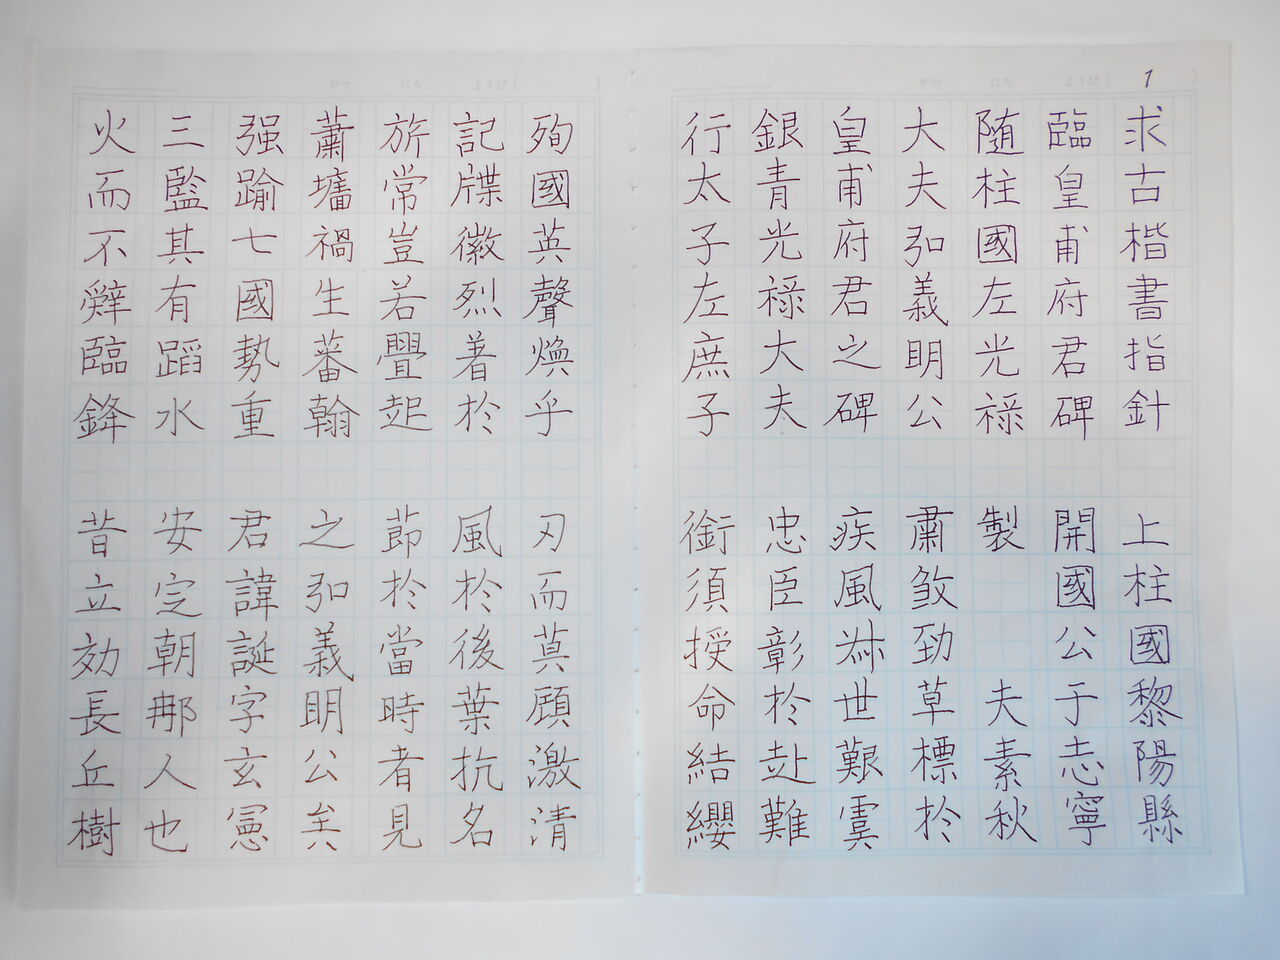 がつ にち ようび( )
1
求古楷書指針
臨皇甫府君碑
随柱國左光禄
大夫弘義明公
皇甫府君之碑
銀青光禄大夫
行太子左庶子
上柱國黎陽縣
開國公于志寧
製 夫素秋
肅煞勁草標於
疾風叔世艱虞
忠臣彰於赴難
銜須授命結纓
がつ にち ようび( )
殉國英聲煥乎
記牒徽烈著於
旂常豈若舋起
蕭墻禍生蕃翰
强踰七國勢重
三監其有蹈水
火而不辭臨鋒
刃而莫顧激清
風於後葉抗名
節於當時者見
之弘義明公矣
君諱誕字玄憲
安定朝那人也
昔立効長丘樹